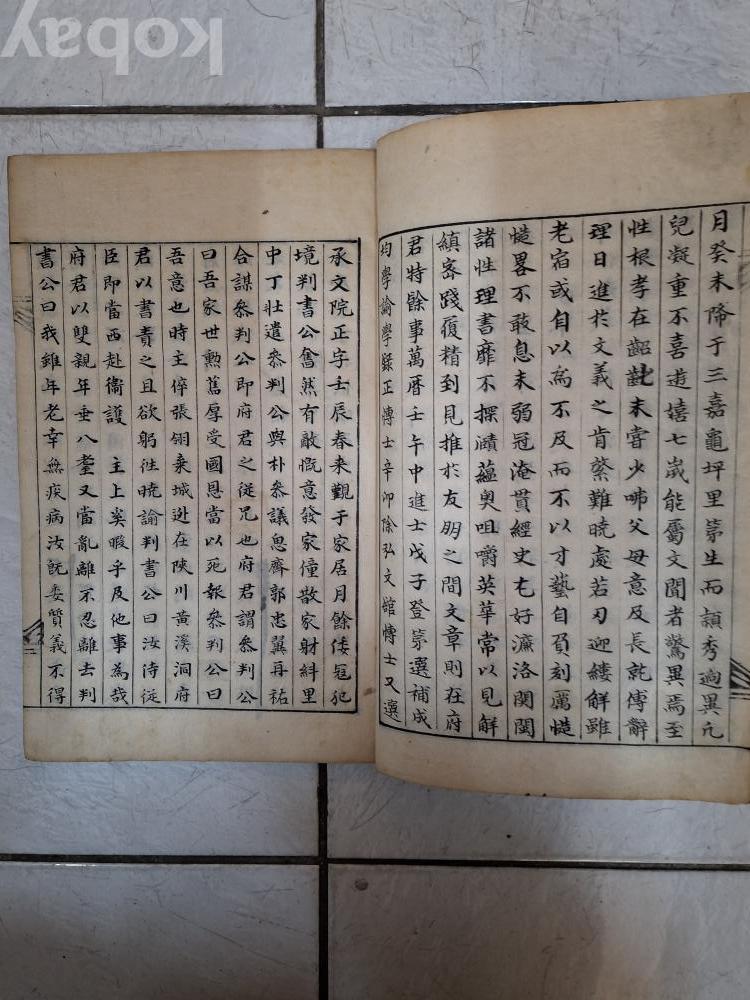 kobay
月癸未降于三嘉龜坪里第生而穎秀過異凢
兒凝重不喜遊嬉七歲能屬文聞者驚異焉至
性根孝在齠齔未嘗少咈父母意及長就傅辭
理日進扵文義之肯綮難曉處若刃迎縷解雖
老宿或自以爲不及而不以才藝自負刻厲慥
慥畧不敢息未弱冠淹貫經史尤好濂洛関閩
諸性理書靡不探賾蘊奥咀嚼英華常以見解
縝密踐履精到見推扵友朋之間文章則在府
君特餘事萬曆壬午中進士戊子登第選補成
均學諭學録正愽士辛卯除弘文館愽士又選
承文院正字壬辰春来覲于家居月餘倭冦犯
境判書公奮然有敵愾意發家僮散家財糾里
中丁壮遣叅判公與朴叅議息齊郭忠翼再祐
合謀叅判公即府君之從兄也府君謂叅判公
曰吾家世勲舊厚受國恩當以死報叅判公曰
吾意也時主倅張翎棄城逃在陜川黄溪洞府
君以書責之且欲躬徃曉諭判書公曰汝侍從
臣即當西赴衛護 主上奚暇乎及他事為哉
府君以雙親年垂八耋又當亂離不忍離去判
書公曰我雖年老幸無疾病汝旣委質義不得